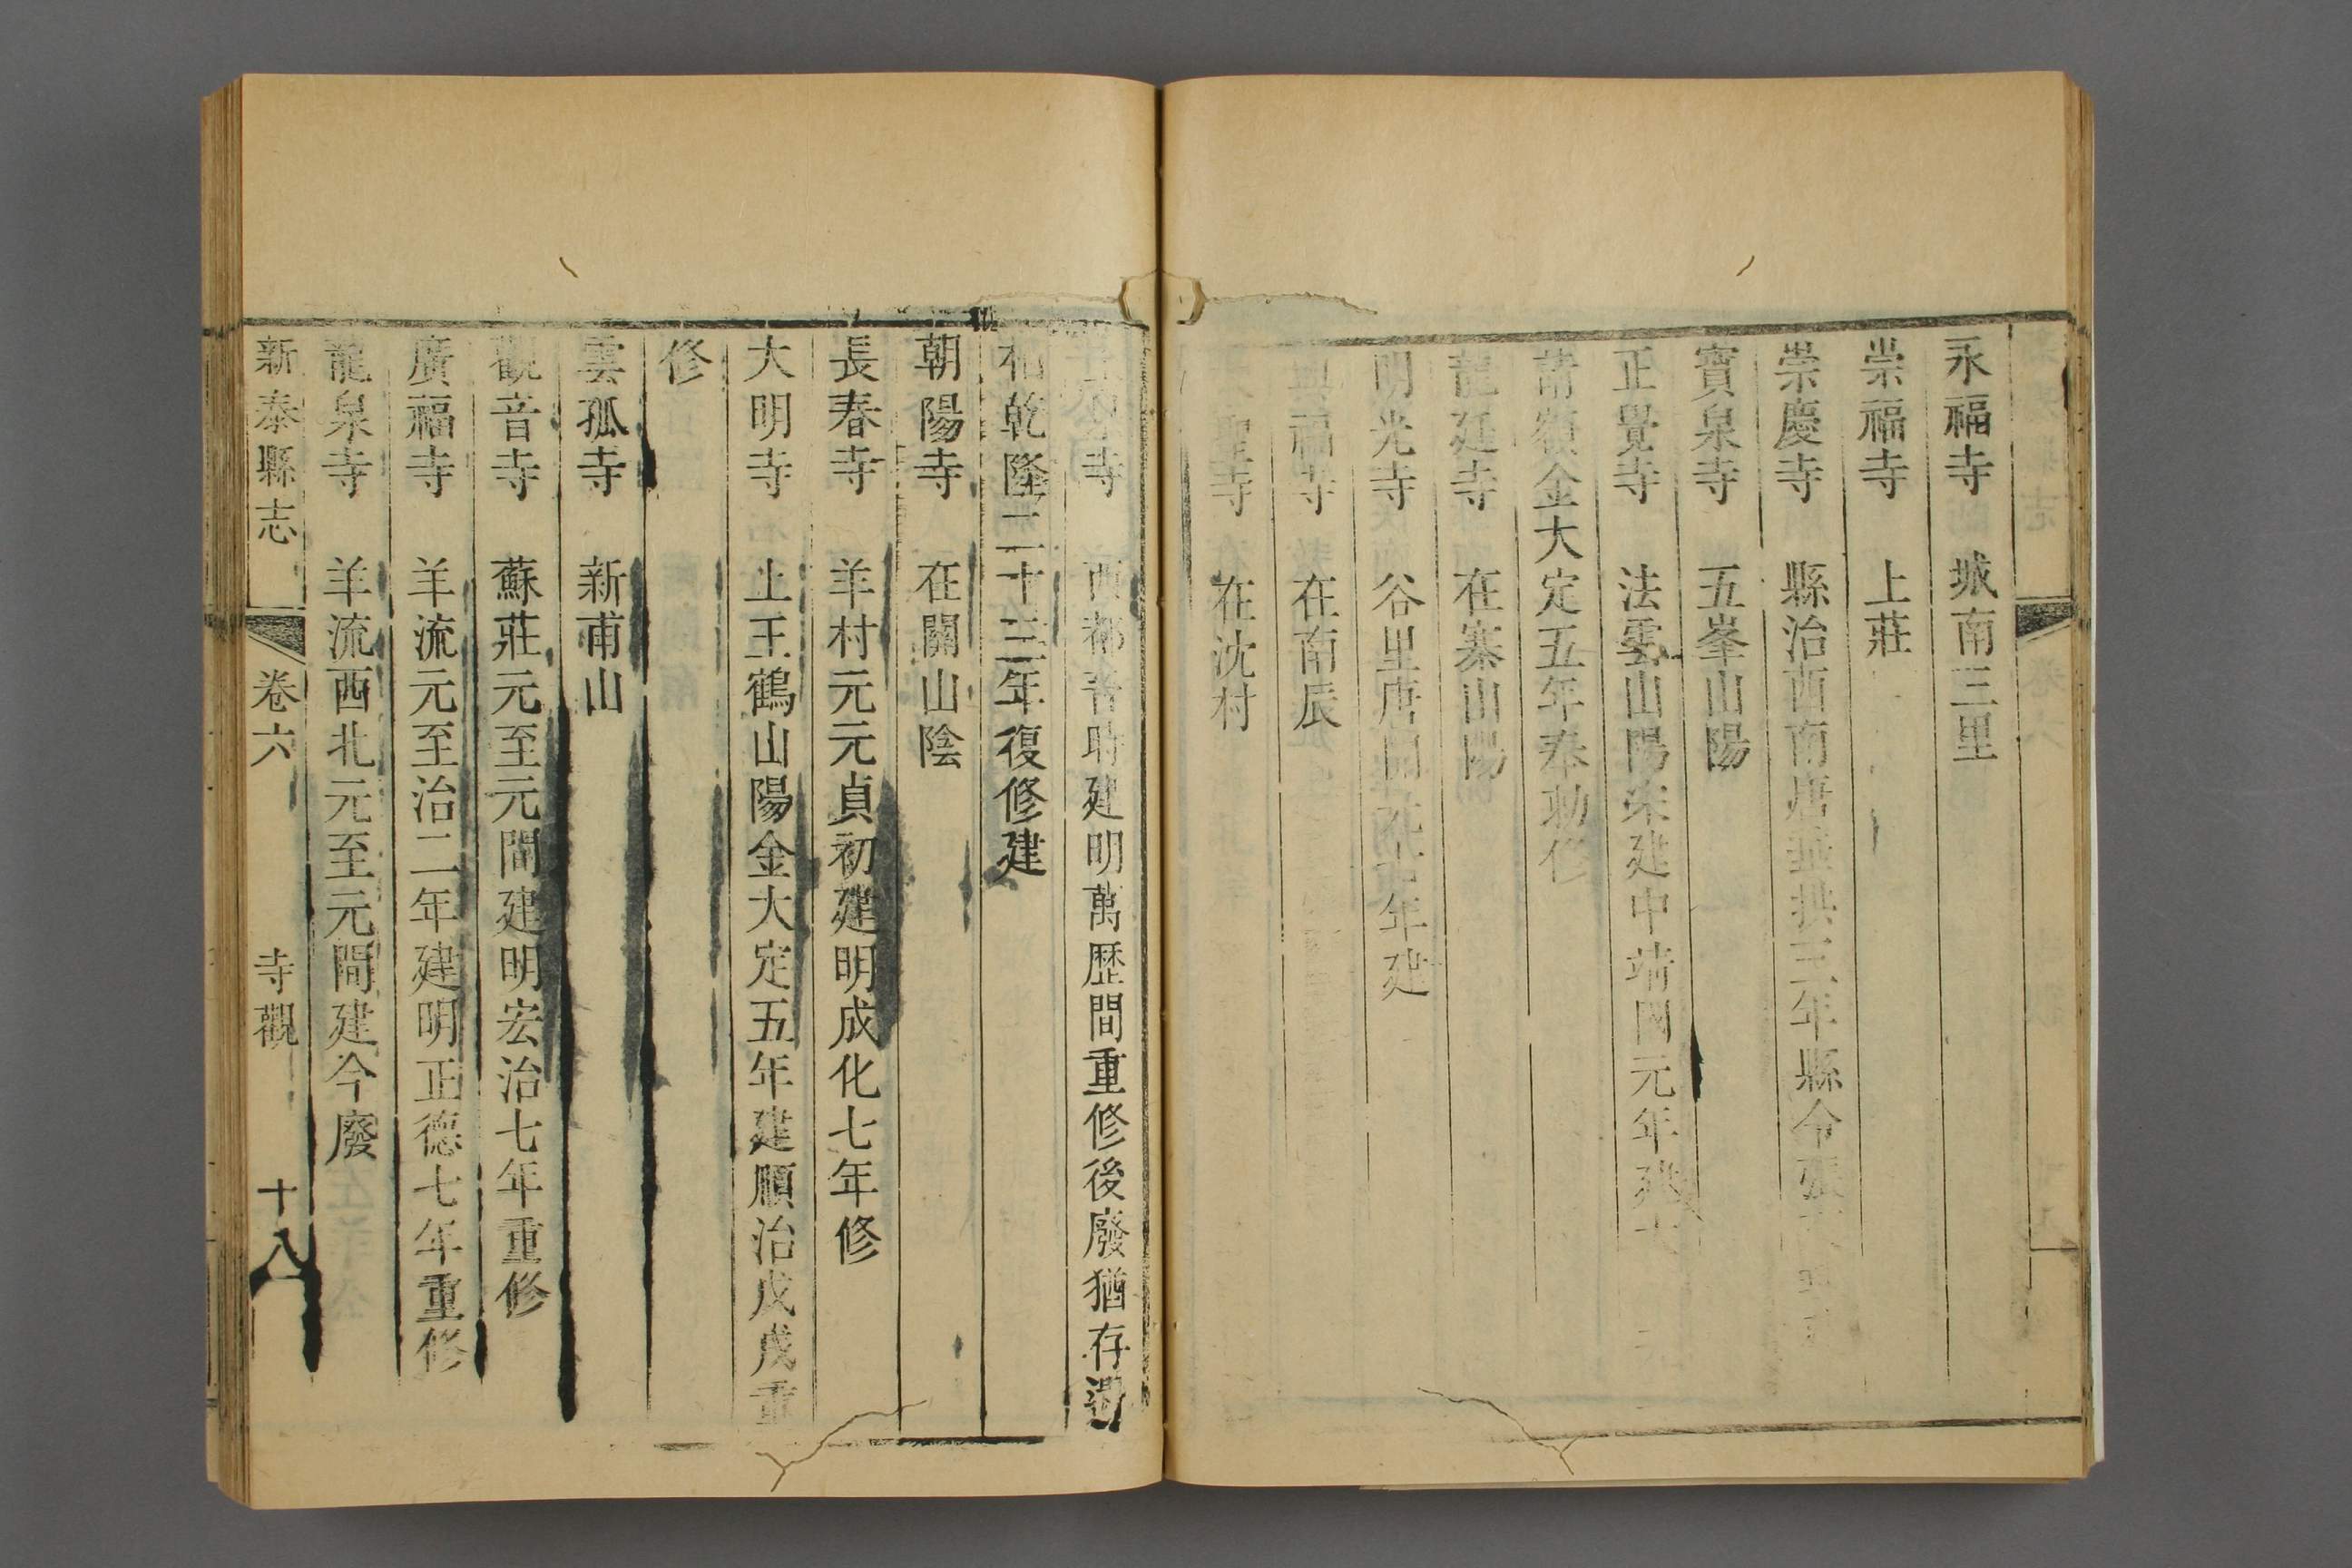 永福寺 城南三里
崇福寺 上莊
崇慶寺 縣治西南唐垂拱三年縣令張
寳泉寺 五峯山陽
正覺寺 法雲山陽宋建中靖國元年建
請額金大定五年奉勅修
龍廷寺 在寨山陽
明光寺 谷里唐開元七年建
興福寺 在南辰
聖寺 在沈村
寺 西都晉時建明萬歴間重修後廢猶存
乾隆二十三年復修建
朝陽寺 在關山陰
長春寺 羊村元元貞初建明成化七年修
大明寺 上王鶴山陽金大定五年建順治戊戌重
修
雲孤寺 新甫山
觀音寺 蘇莊元至元間建明宏治七年重修
廣福寺 羊流元至治二年建明正德七年重修
龍泉寺 羊流西北元至元間建今廢
新泰縣志 卷六 寺觀 十八